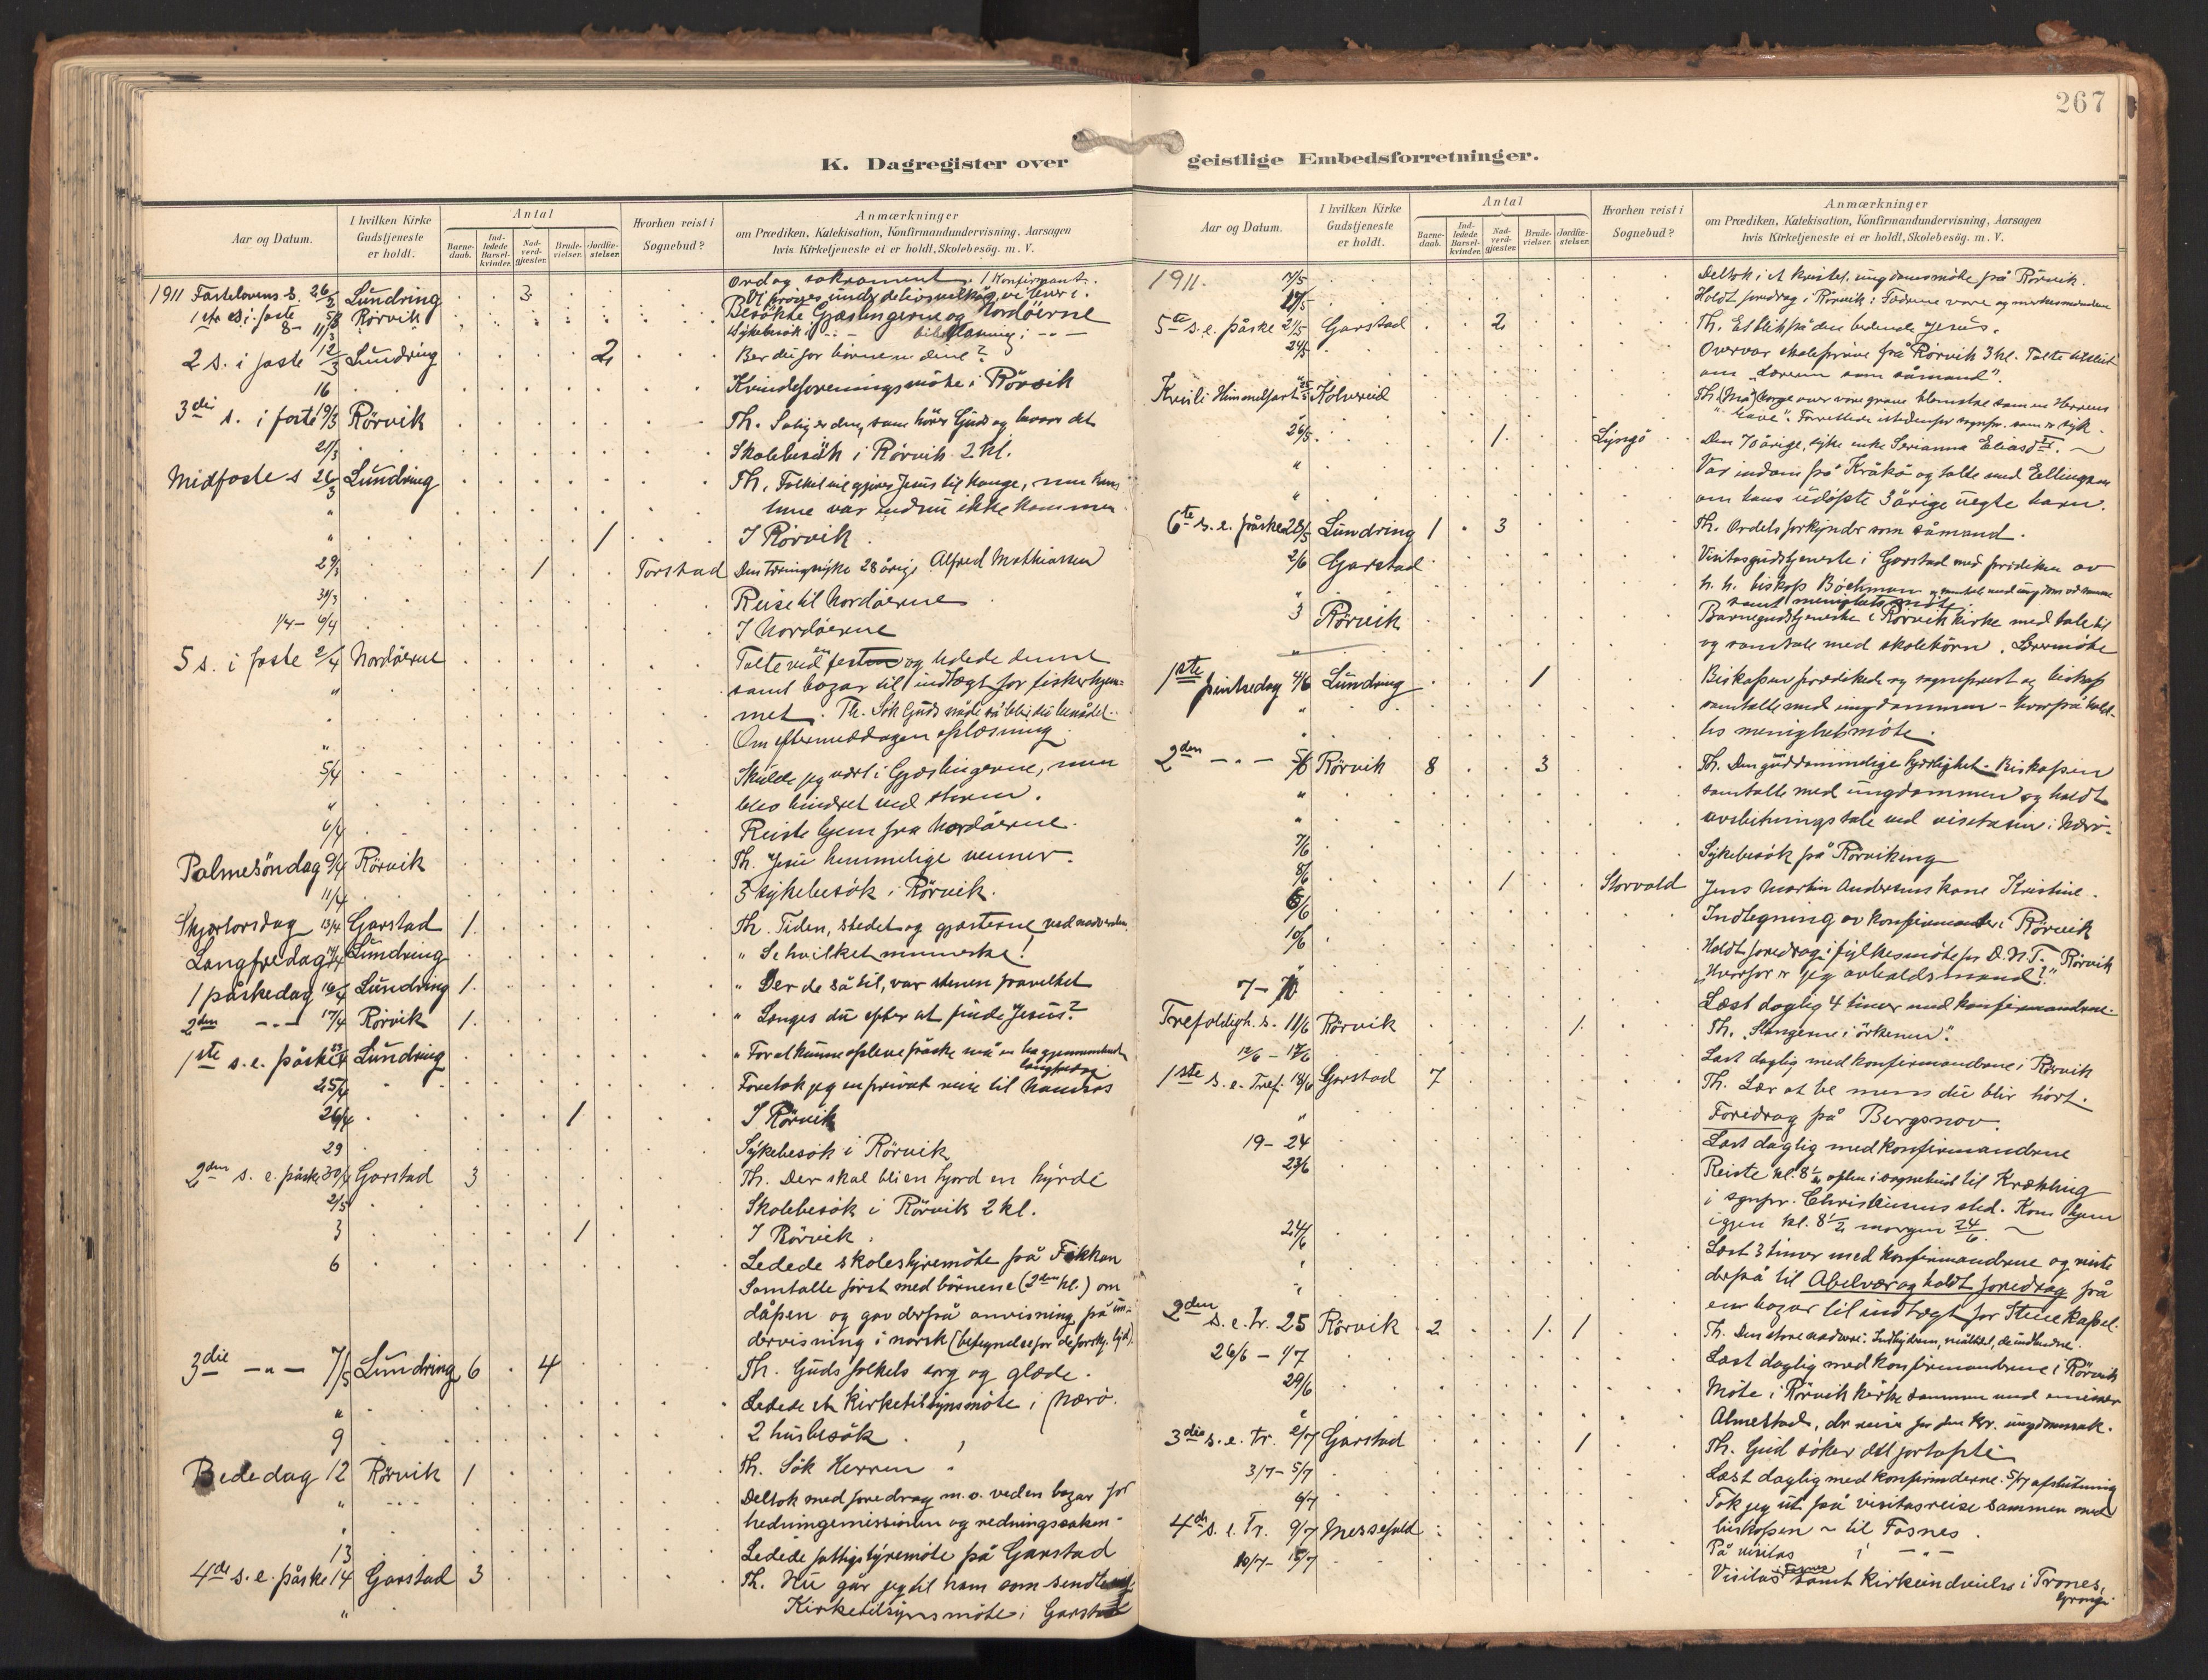 267
K. Dagregister over geistlige Embedsforretninger.
Aar og Datum.
I hvilken Kirke Gudstjeneste er holdt.
Antal
Barne-daab.
Ind-ledede Barsel-kvinder.
Nad-verd-gjæster.
Brude-vielser.
Jordfæ-stelser.
Hvorhen reist i Sognebud?
Anmærkninger
om Prædiken, Katekisation, Konfirmandundervisning, Aarsagen
hvis Kirketjeneste ei er holdt, Skolebesøg. m. V.
1911 Fastelavens s. 26/2 Lundring 3 Ord og sakrament. 1 Konfirmant.
1ste s. i faste 5/3 Rörvik
8 - 11/3 Besökte Gjæslingerne og Nordöerne
2 s. i faste 12/3 Lundring 2 Ber du for börnene dine?
16 Kvindeforeningsmöte i Rörvik
3die s. i faste 19/3 Rörvik Th. Salig er den, som hörer Guds og bevarer det
21/3 Skolebesök i Rörvik 2 kl.
Midfaste s 26/3 Lundring Th. Folket vil gjöre Jesus til konge, men hans
time var endnu ikke kommen
" 1 I Rörvik.
29/3 1 Torstad Den tæringsyke 28 årige Alfred Mathiassen
31/3 Reise til Nordöerne
1/4 - 6/4 I Nordöerne
5 s. i faste 2/4 Nordöerne Talte ved en festen og ledede denne
samt bazar til indtægt for fiskerhjem-
met. Th. Sök Guds nåde så blir du benådet.
Om eftermiddagen oplæsning
5/4 Skulde jeg vært i Gjæslingerne, men
blev hindret ved storm.
6/4 Reiste hjem fra Nordöerne.
Palmesöndag 9/4 Rörvik Th. Jesu hemmelige venner.
11/4 3 sykebesök i Rörvik.
Skjærtorsdag 13/4 Garstad 1. Th. Tiden, stedet og gjæsterne ved nadverden.
Langfredag 14/4 Lundring " Se hvilket menneske!
1 påskedag 16/4 Lundring 1. " Der de så til, var stenen fravæltet
2den - " - 17/4 Rörvik 1. " Længes du efter at finde Jesus?
1ste s. e. påske 23/4 Lundring " For at kunne opleve påske må en ha gjennemlevet
langfredag.
25/4 Foretok jeg en privat reise til Namsos
26/4 1 I Rörvik
29 Sykebesök i Rörvik
2den s. e. påske 30/4 Garstad 3 Th. Der skal bli en hjord en hyrde
2/5 Skolebesök i Rörvik 2 kl.
3 1 I Rörvik.
6 Ledede skolestyremöte på Fikkan
Samtalte först med börnene (2den kl.) om
dåpen og gav derpå anvisning på un-
dervisning i norsk
3die - " - 7/5 Lundring 6 4 Th. Guds folkets sorg og glæde.
" Ledede et Kirketilsynsmöte i Nærö.
9 2 husbesök.
Bededag 12 Rörvik 1 Th. Sök Herren.
" Deltok med foredrag m.v. ved en bazar for
hedningemissionen og redningssaken.
13 Ledede fattigstyremöte på Garstad
4de s. e. påske 14 Garstad 3 Th. Nu går jeg til ham som sendte mig.
" Kirketilsynsmöte i Garstad
Aar og Datum.
I hvilken Kirke Gudstjeneste er holdt.
Antal
Barne-daab.
Ind-ledede Barsel-kvinder.
Nad-verd-gjæster.
Brude-vielser.
Jordfæ-stelser.
Hvorhen reist i Sognebud?
Anmærkninger
om Prædiken, Katekisation, Konfirmandundervisning, Aarsagen
hvis Kirketjeneste ei er holdt, Skolebesøg. m. V.
1911. Deltok i et kristel. ungdomsmöte på Rörvik.
Holdt foredrag i Rörvik:
5te s. e. påske 21/5 Garstad 2 Th. Et blik på den bedende Jesus.
24/5 Overvar skolepröve på Rörvik 3 kl. Talte tilslut
om "Læreren som såmand".
Kristi Himmelfart 25/5 Kolvereid
26/5 1. Lyngö Den 70 årige, syke enke Serianna Eliasdtr. ~
" Var indom på Kråkö og talte med Ellingsen
om hans udöpte 3 årige uegte barn.
6te s. e. påske 28/5 Lundring 1 3 Th. Ordets forkynder som såmand.
2/6 Garstad Visitasgudstjeneste i Garstad med prædiken av
h. h. biskop Böckman
samt menighetsmöte.
3 Rörvik Barnegudstjeneste i Rörvik kirke med tale til
og samtale med skolebörn. Lærermöte
1ste pintsedag 4/6 Lundring 1 Biskopen prædikede og sogneprest og biskop
samtalte med ungdommen - hvorpå hold-
tes menighetsmöte.
2den - " - 5/6 Rörvik 8 3 Th. Den guddommelige kjærlighet. Biskopen
samtalte med ungdommen og holdt
avslutningstale ved visitasen i Nærö.
7/6 Sykebesök på Rörvikeng
8/6 1 Storvold Jens Martin Andersens kone Kristine.
6/6 Indtegning av konfirmanter i Rörvik
10/6 Holdt foredrag i fylkesmöte for D. N. T. Rörvik
"Hvorfor er jeg avholdsmand?"
7 - 10 Læst daglig 4 timer med konfirmanderne.
Trefoldigh. s. 11/6 Rörvik 1. Th. "Slangerne i örkenen".
12/6 - 17/6 Læst daglig med konfirmanderne i Rörvik
1ste s. e. Tref. 18/6 Garstad 7 Th. Lær at be mens du blir hört.
" Foredrag på Bergsnov.
19 - 24 Læst daglig med konfirmanderne
23/6 Reiste kl. 8 1/2 aften i sognebud til Krækling
i sognpr. Christensens sted. Kom hjem
igjen kl. 8 1/2 morgen 24/6 ~
24/6 Læst 3 timer med konfirmanderne og reiste
derpå til Abelvær og holdt foredrag på
en bazar til indtægt for Steine kapel.
2den s. e. tr. 25 Rörvik 2 1. 1 Th. Den store nadvere: Indbyderen, måltidet, de indbudne.
26/6 - 1/7 Læst daglig med konfirmanderne i Rörvik
29/6 Möte i Rörvik kirke sammen med emissær
Almestad,
3die s. e. tr. 2/7 Garstad 1 Th. Gud söker det fortapte
3/7 - 5/7 Læst daglig med konfirmderne. 5/7 afslutning
6/7 Tok jeg ut på visitasreise sammen med
biskopen ~ til Fosnes.
4de s. e. Tr. 9/7 På visitas i - " -
10/7 - 15/7 Visitas Fosnes samt kirkeindvielse i Trones,
Grong.